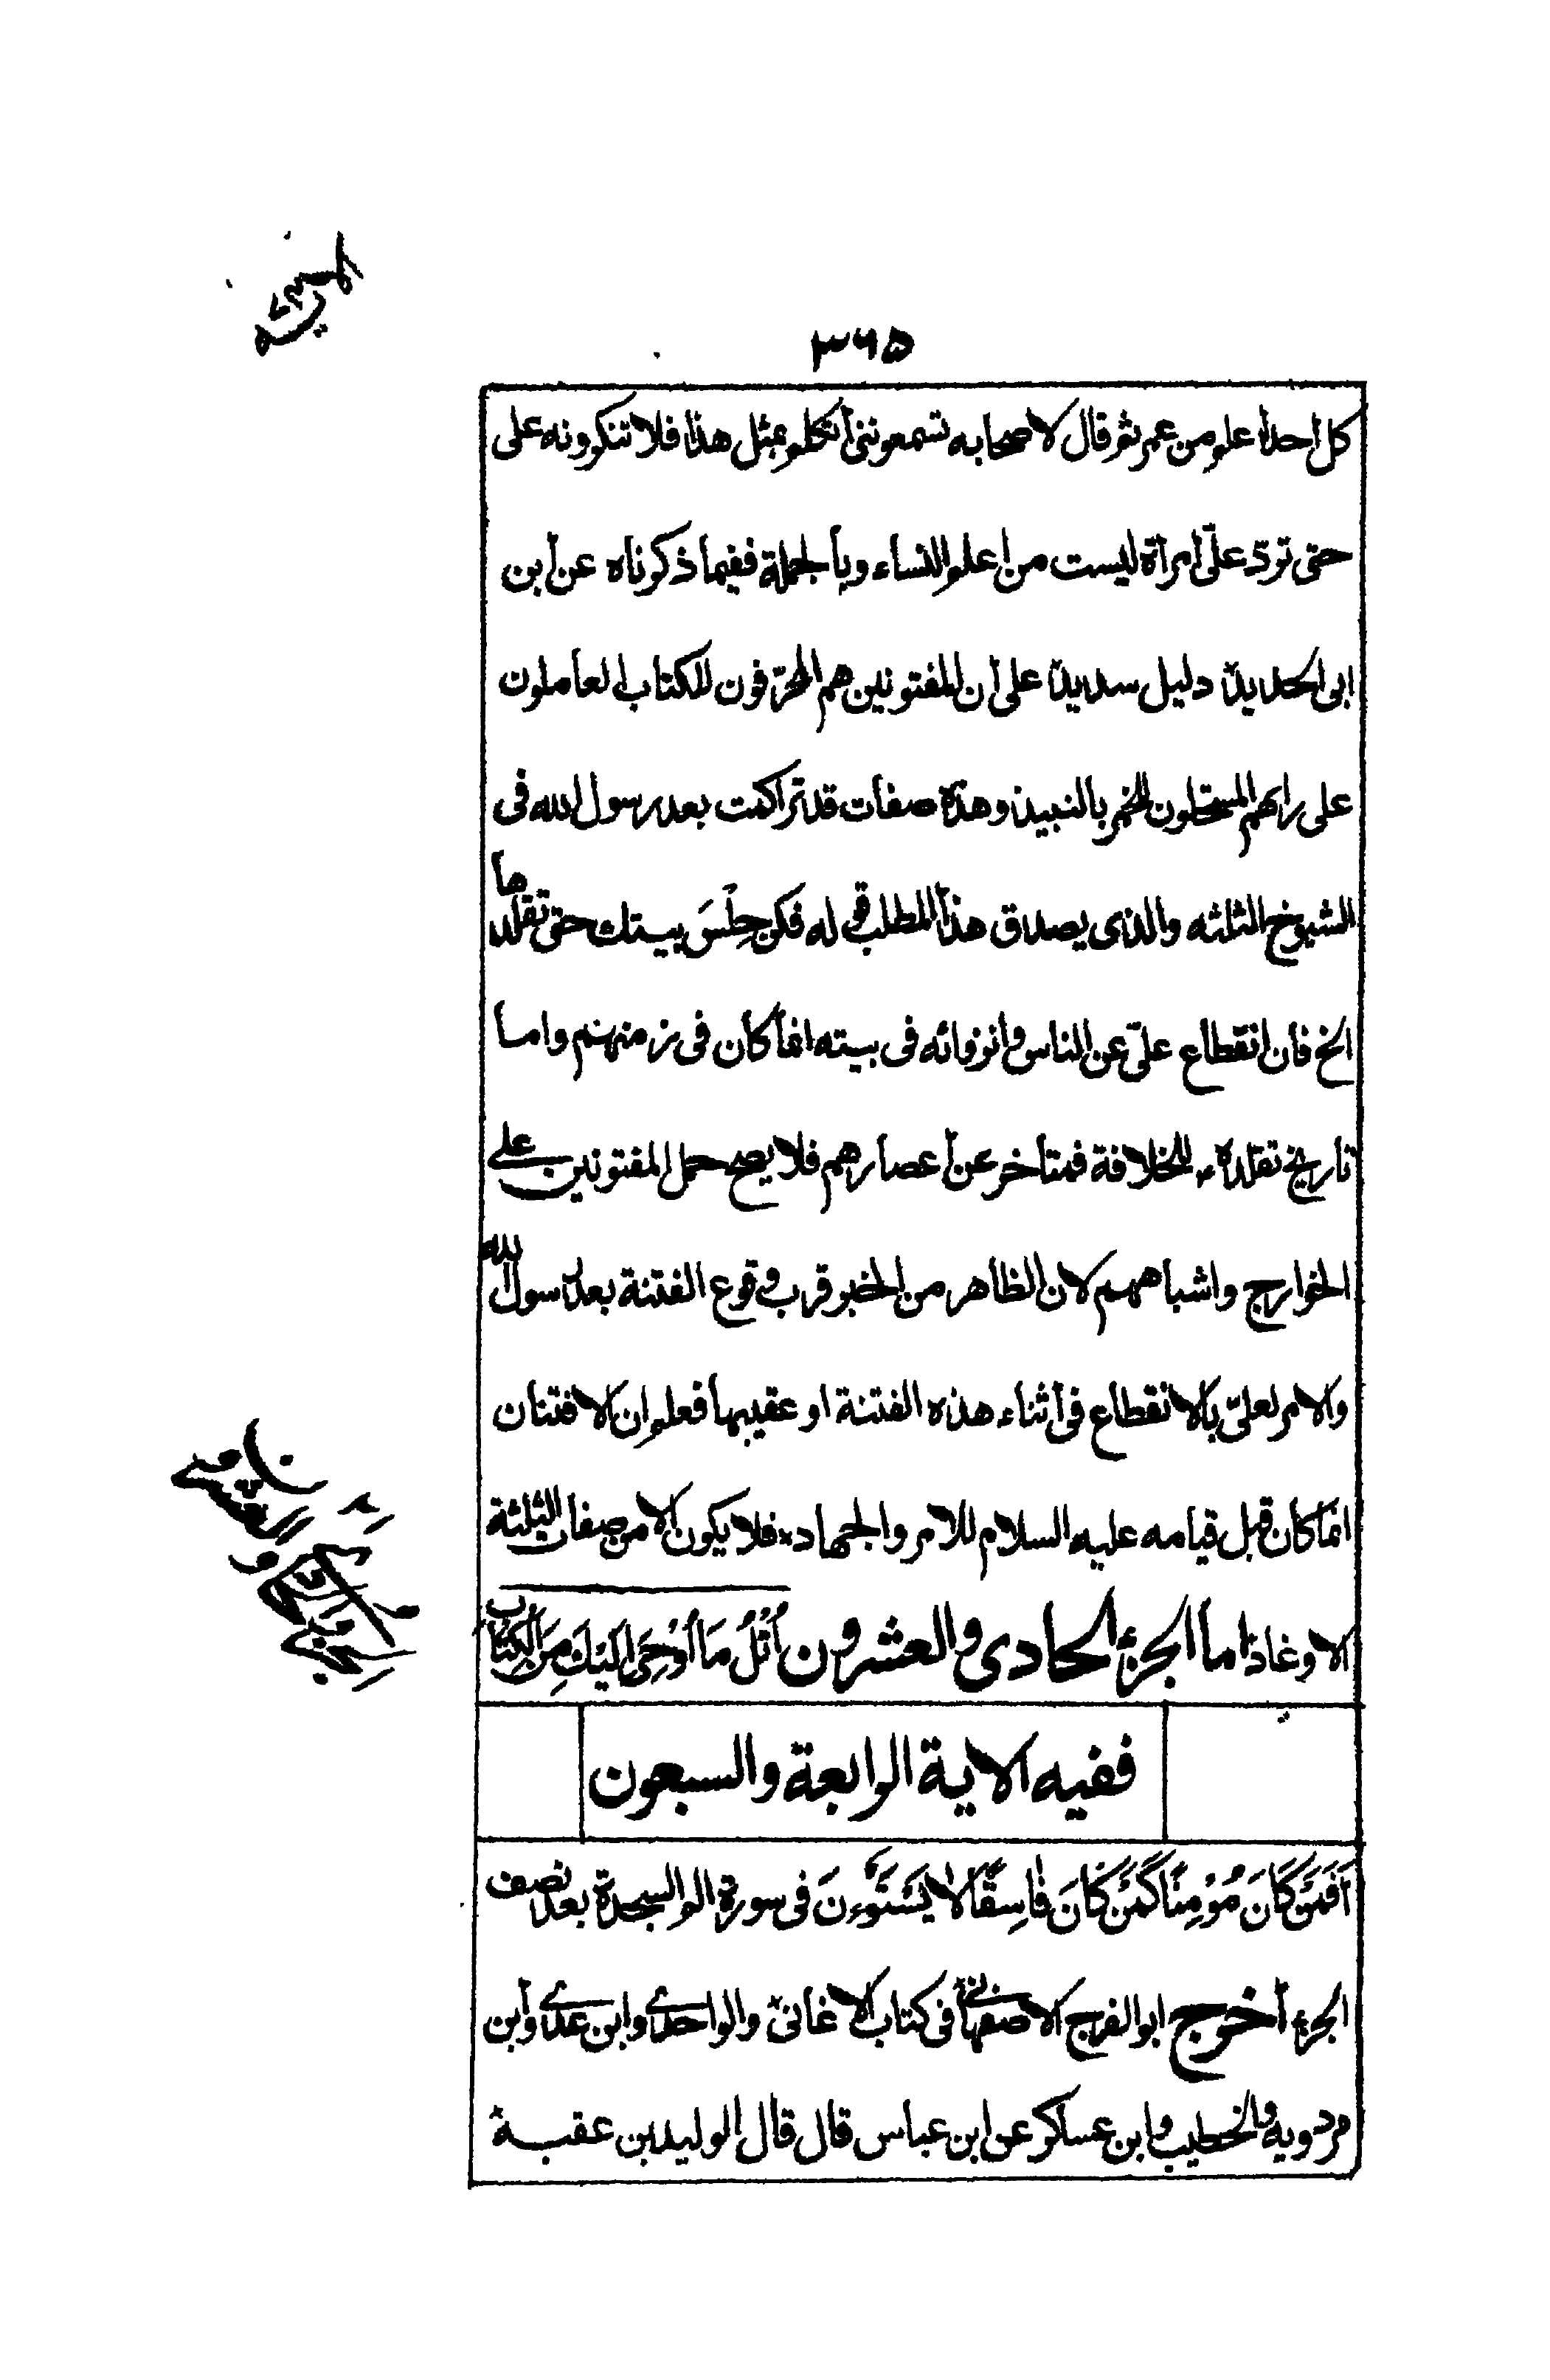 ۳۶۵
كل احد اعلم من عمر ثم قال لاصحابه تسمعوننى اتكلم بمثل هذا فلا تنكرونه على
حتى تردّ علىّ امرأة ليست من اعلم النساء وبالجملة ففيما ذكرناه عن ابن
ابى الحديد دليل سديد على ان المفتونين هم المحرّفون للكتاب العاملون
على رايهم المستحلون للخمر بالنبيذ وهذه صفات قد تراكمت بعد رسول الله فى
الشيوخ الثلثه والذى يصدق هذا المطلب قوله فكن حِلْسَ بيتك حتى تقلدها
الخ فان انقطاع علىّ عن الناس وانزوائه فى بيته انما كان فى زمنهم واما
تاريخ تقلده للخلافة فمتاخر عن اعصارهم فلا يصح حمل المفتونين على
الخوارج واشباههم لان الظاهر من الخبر قرب وقوع الفتنة بعد رسول الله
والامر لعلىّ بالانقطاع فى اثناء هذه الفتنة او عقيبها فعلم ان الافتنان
انما كان قبل قيامه عليه السلام للامر والجهاد فلا يكون الا من صفات الثلثة
الاوغاد اما الجزء الحادى والعشرون اُتْلُ مَا اُوْحِىَ اِلَيْكَ مِنَ الْكِتَابِ
ففيه الاية الرابعة والسبعون
اَفَمَنْ كَانَ مُؤْمِنًا كَمَنْ كَانَ فَاسِقًا لَا يَسْتَوٗنَ فى سورة الم السجدة بعد نصف
الجزء أخرج ابو الفرج الاصفهانى فى كتاب الاغانى والواحدى وابن عدى وابن
مردويه والخطيب وابن عساكر عن ابن عباس قال قال الوليد بن عقبة